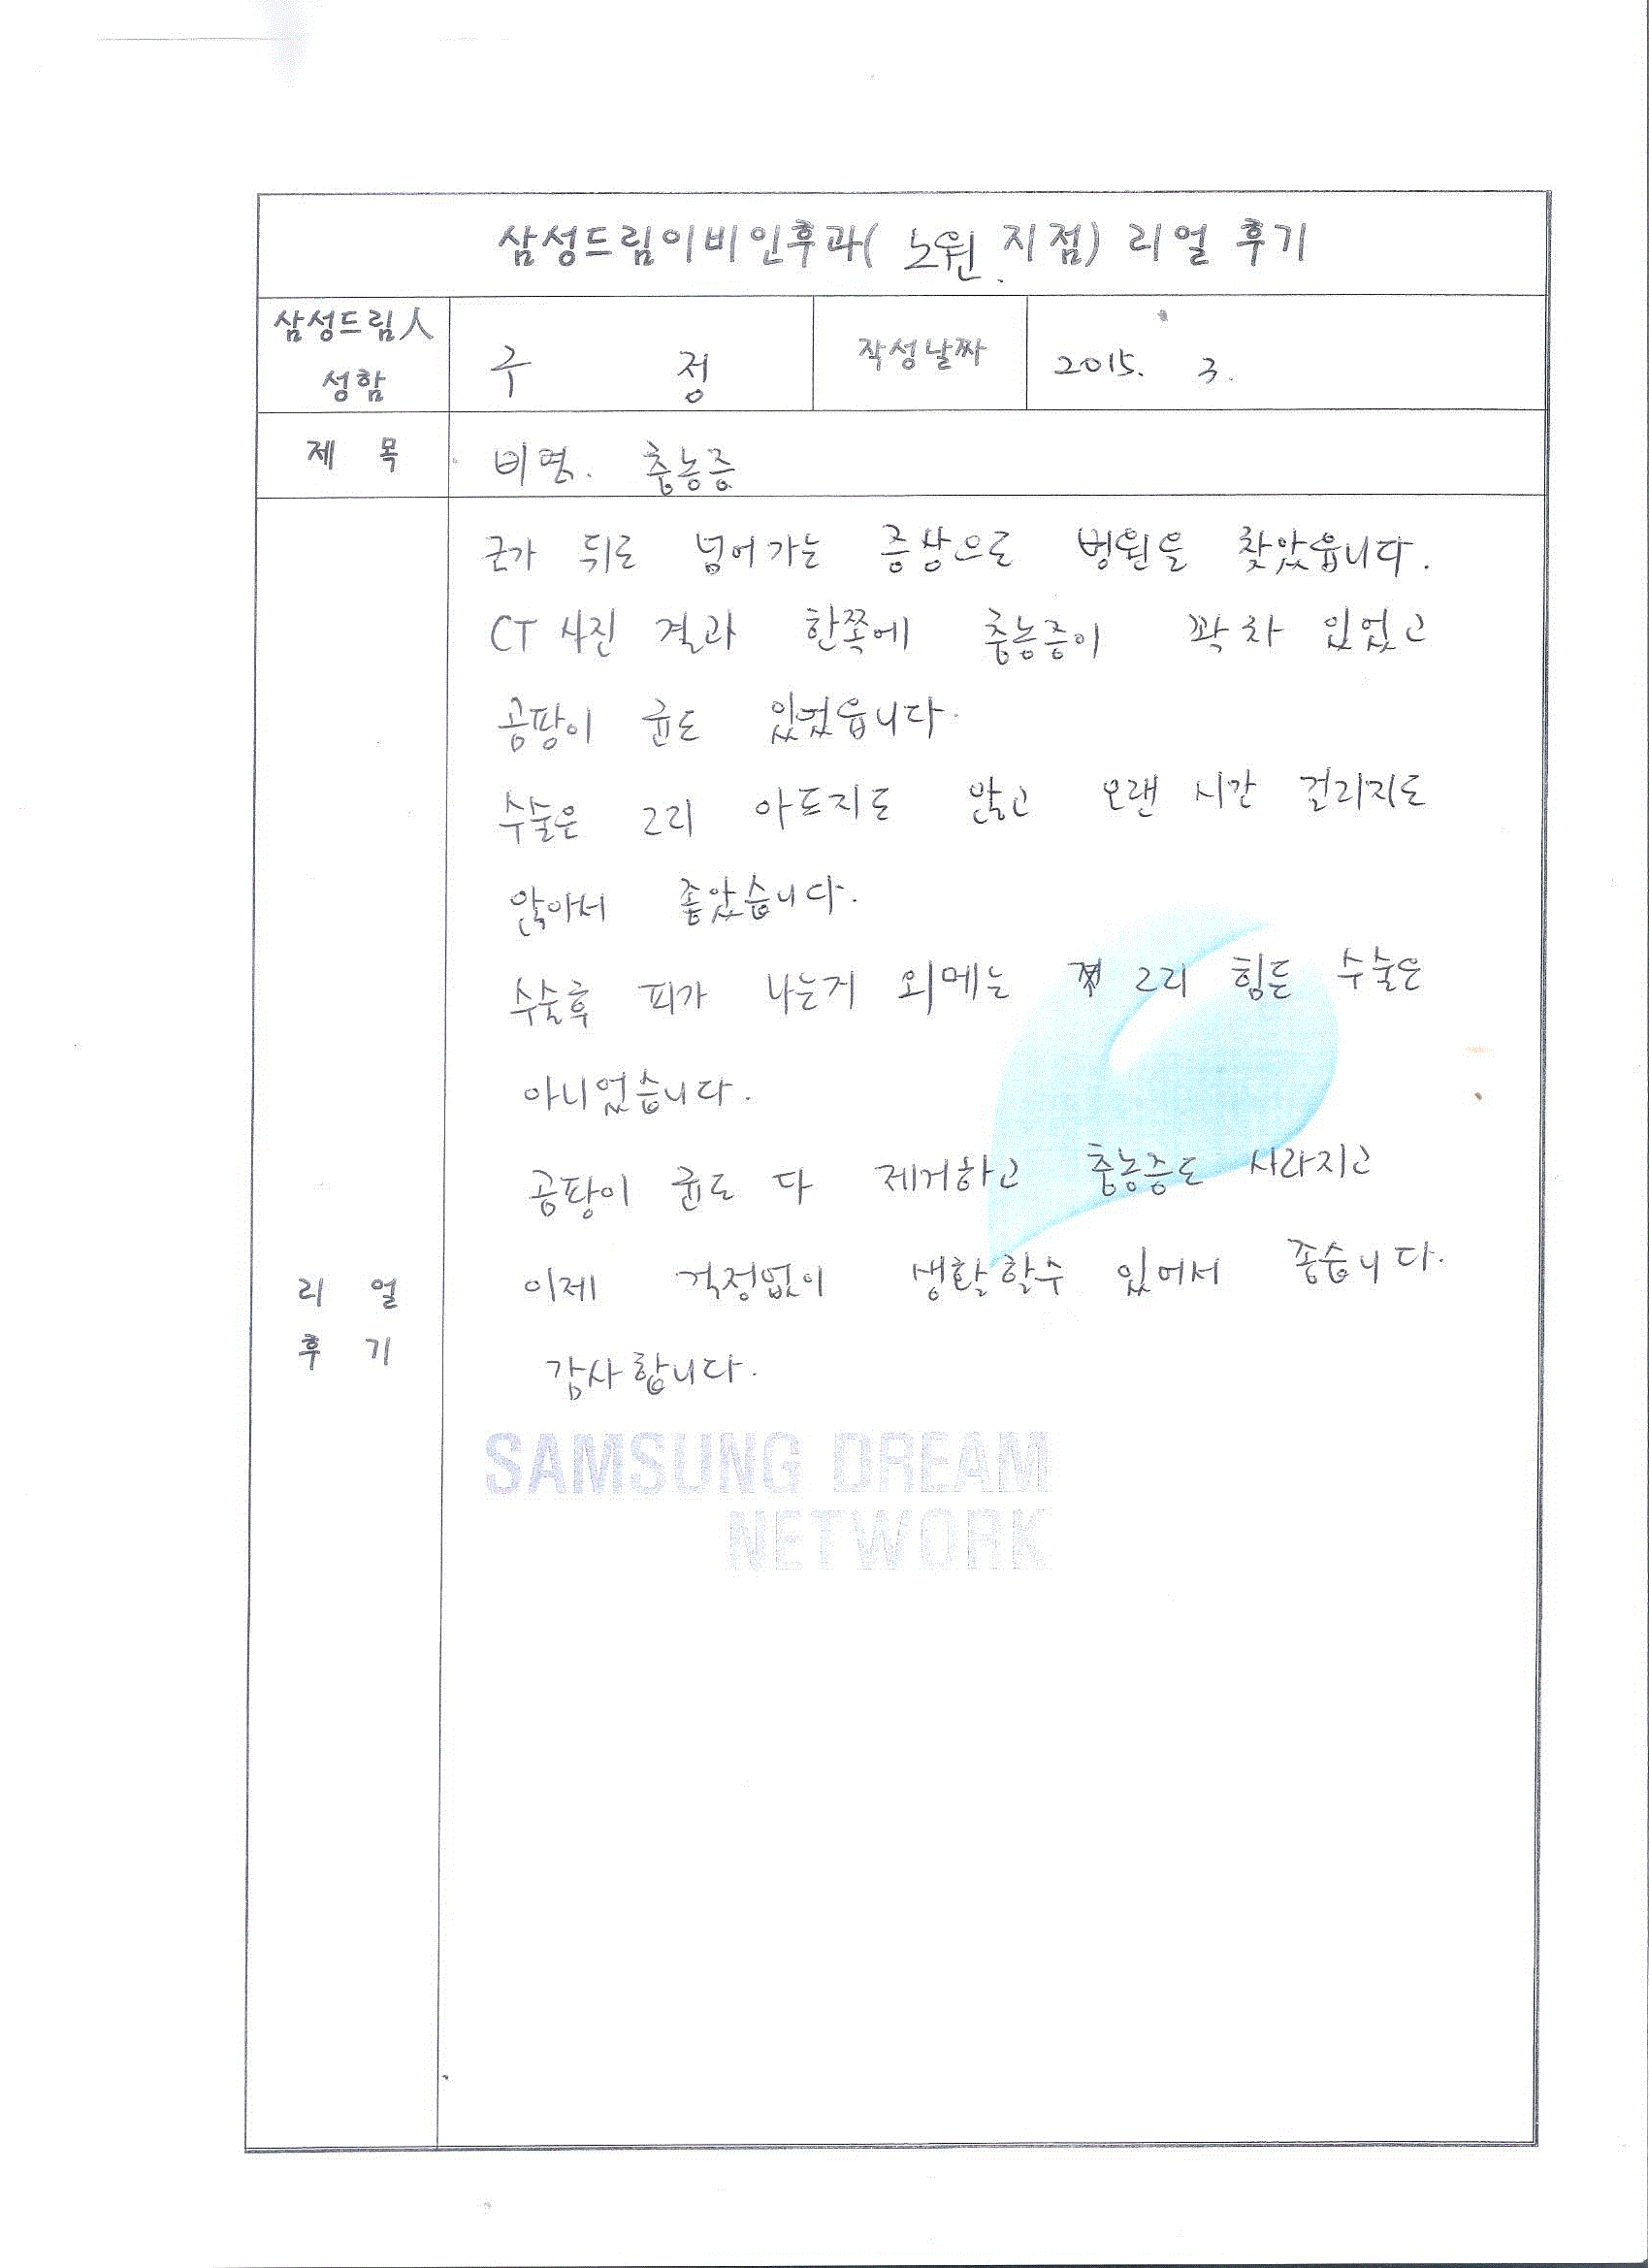 삼성드림이비인후과( 노원 지점) 리얼 후기
삼성드림人
성함
주 정
작성날짜
2015. 3.
제 목
비염. 충농증
코가 뒤로 넘어가는 증상으로 병원을 찾았읍니다.
CT 사진 결과 한쪽에 충농증이 꽉 차 있었고
곰팡이 균도 있었읍니다.
수술은 그리 아프지도 않고 오랜 시간 걸리지도
않아서 좋았습니다.
수술후 피가 나는거 외에는 그리 힘든 수술은
아니었습니다.
곰팡이 균도 다 제거하고 충농증도 사라지고
이제 걱정없이 생활할수 있어서 좋습니다.
감사합니다.
리 얼
후 기
SAMSUNG DREAM
NETWORK